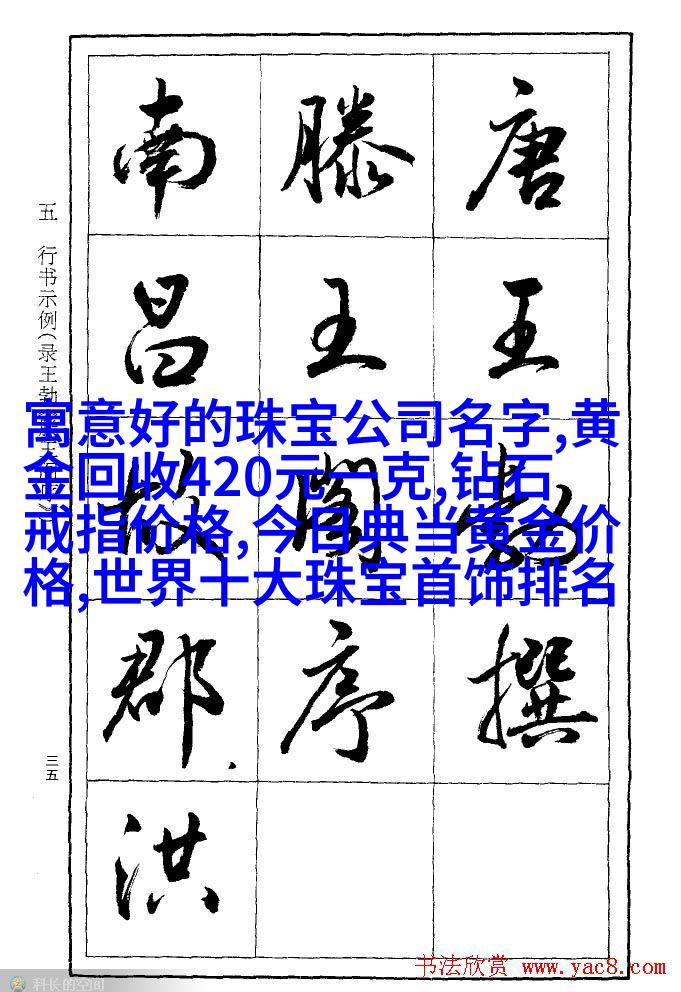 唐王勃撰
滕王閣序
南昌故郡.洪
五 行书示例(录王勃
三五
寓意好的珠宝公司名字,黄
金回收420元一克,钻石
戒指价格,今日典当黄金价
格,世界十大珠宝首饰排名
书法欣赏 www.yac8.com
科长的空间